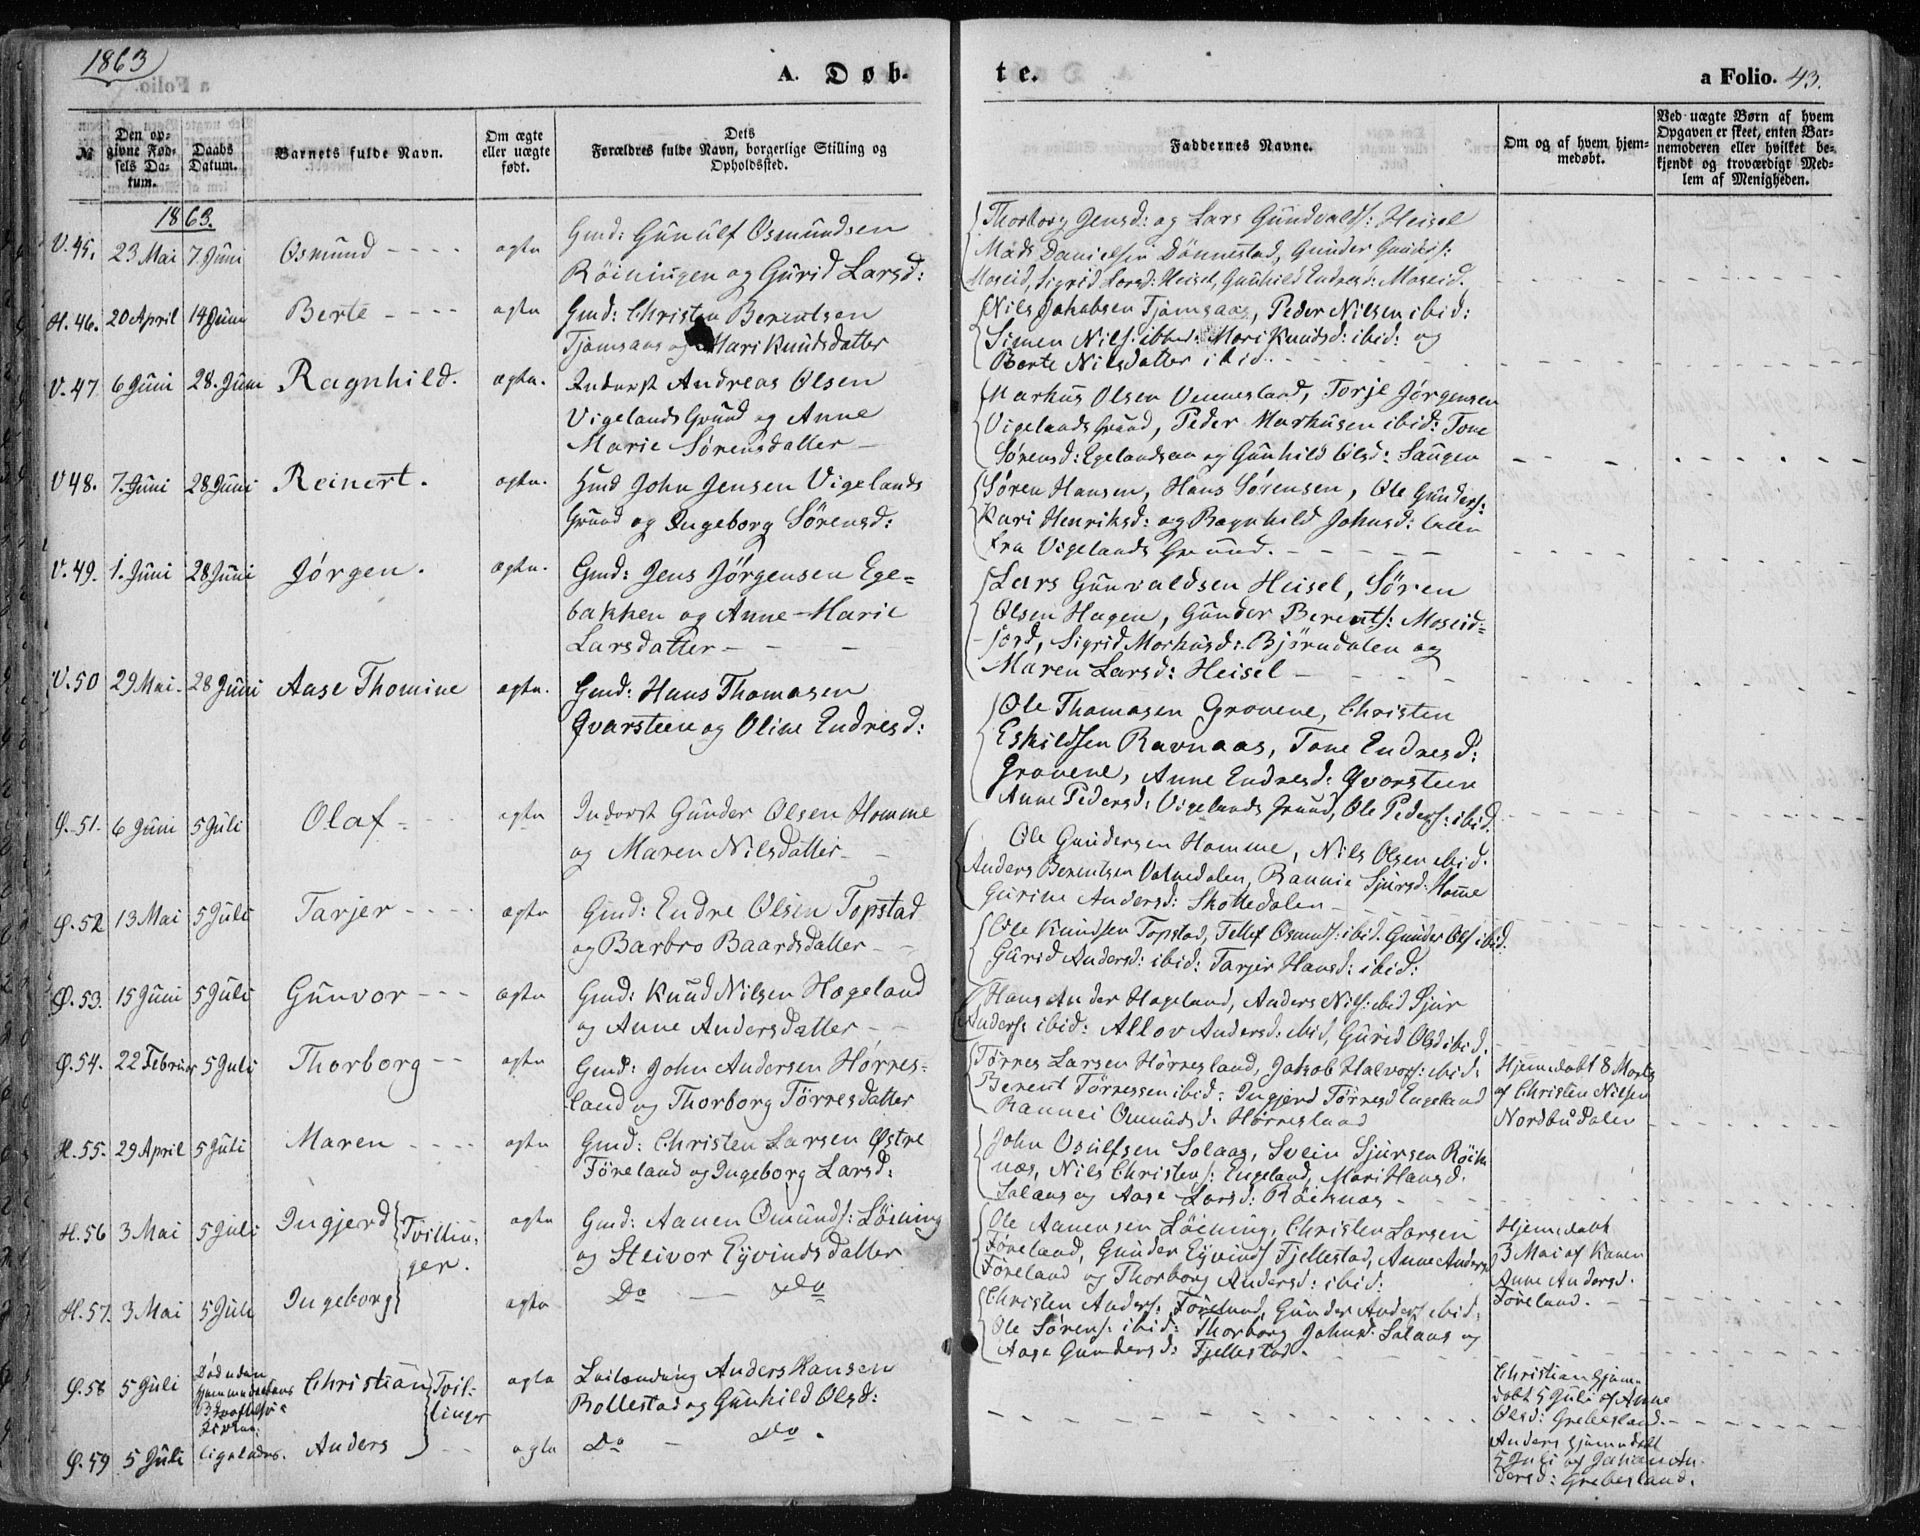 1863
A. Døb-
te.
a Folio. 43.
№
Den op-
givne Fød-
sels Da-
tum.
Daabs
Datum.
Barnets fulde Navn.
Om ægte
eller uægte
født.
Dets
Forældres fulde Navn, borgerlige Stilling og
Opholdssted.
Faddernes Navne.
Om og af hvem hjem-
medøbt.
Ved uægte Børn af hvem
Opgaven er skeet, enten Bar-
nemoderen eller hvilket be-
kjendt og troværdigt Med-
lem af Menigheden.
1863.
V. 45. 23 Mai 7 Juni Osmund - - - - ægte
Gmd: Gunulf Osmundsen
Röiningen og Gurid Larsd:
Thorborg Jensd: og Lars Gundvalds: Heisel
Mads Danielsen Dønnestad, Gunder Gunders:
Moseid, Sigrid Larsd: Heisel, Gunhild Endresd: Moseid.
H. 46. 20 April 14 Juni Berte - - - - ægte
Gmd: Christen Berentsen
Tjomsaas og Mari Knudsdatter
Nils Jakobsen Tjomsaas, Peder Nilsen ibid:
Simen Nils: ibid: Mari Knudsd: ibid: og
Berte Nilsdatter ibid.
V. 47 6 Juni 28. Juni Ragnhild. ægte.
Inderst Andreas Olsen
Vigelands Grund og Anne
Marie Sørensdatter -
Markus Olsen Vennesland, Torje Jørgensen
Vigelands Grund, Peder Markusen ibid: Tone
Sørensd: Egelandsaa og Gunhild Olsd: Saugen
V 48. 7. Juni 28 Juni Reinert. ægte.
Hmd John Jensen Vigelands
Grund og Ingeborg Sörensd:
Søren Hansen, Hans Sörensen, Ole Gunders:
Kari Henriksd: og Ragnhild Johnsd: alle
fra Vigelands Grund.
V. 49. 1. Juni 28 Juni Jørgen. ægte.
Gmd: Jens Jørgensen Ege=
bakken og Anne-Marie
Larsdatter - - -
Lars Gunvaldsen Heisel, Sören
Olsen Hagen, Gunder Berents: Moseid=
jord, Sigrid Markusd: Bjørndalen og
Maren Larsd: Heisel -
V. 50 29 Mai. 28 Juni Aase Thomine ægte.
Gmd: Hans Thomasen
Qvarsteen og Oline Endresd:
Ole Thomasen Grovene, Christen
Eskildsen Ravnaas, Tone Endresd:
Grovene, Anne Endresd: Qvarsteen
Anne Pedersd: Vigelands Grund, Ole Peders: ibid.
Ø. 51. 6 Juni 5 Juli Olaf - ægte
Inderst Gunder Olsen Homme
og Maren Nilsdatter -
Ole Gundersen Homme, Nils Olsen ibid.
Anders Berentsen Valnedalen, Rannie Sjursd: Homme
Gurine Andersd: Skottedalen -
Ø. 52 13 Mai 5 Juli Tarjer - - - - ægte
Gmd: Endre Olsen Topstad
og Barbro Baardsdatter -
Ole Knudsen Topstad, Tellef Osmunds: ibid. Gunder Ols ibid.
Gurid Andersd: ibid: Tarjer Hansd: ibid:
Ø. 53. 15 Juni 5 Juli Gunvor - - - ægte
Gmd: Knud Nilsen Hægeland
og Anne Andersdatter - -
Hans Ander Hægeland, Anders Nils: ibid Sjur
Anders: ibid: Allov Andersd: ibid, Gurid Olsd ibid.
Ø. 54. 22 Februar 5 Juli Thorborg - - ægte
Gmd: John Andersen Hørres-
land og Thorborg Törresdatter
Törres Larsen Hørresland, Jakob Halvors: ibid:
Berent Törressen ibid: Ingjerd Törresd Engeland
Rannei Omundsd: Hørresland
Hjemedøbt 8 Marts
af Christen Nilsen
Nordbudalen
H. 55. 29 April 5 Juli Maren - - - - ægte
Gmd: Christen Larsen Østre
Föreland og Ingeborg Larsd:
John Osulfsen Solaas, Svein Sjursen Röik
næs, Nils Christens: Engeland, Mari Hansd.
Solaas og Aase Larsd: Röiknæs
H. 56 3 Mai 5 Juli Ingjerd Tvillin- ægte
ger.
Gmd: Aanen Omunds: Löining
og Steivor Eyvindsdatter
Ole Aanensen Löining, Christen Larsen
Føreland, Gunder Eyvinds Fjellestad, Anne Anders
Føreland og Thorborg Andersd: ibid:
Hjemedøbt
3 Mai af Konen
Anne Andersd.
Føreland. -
H. 57. 3 Mai 5 Juli Ingeborg ægte
Do - Do
Christen Anders: Føreland, Gunder Anders ibid:
Ole Sørens: ibid: Thorborg Johnsd. Solaas og
Aase Gundersd: Fjellestad.
Ø. 58 5 Juli Christian Tvil- ægte
linger
Leilænding Anders Hansen
Rollestad og Gunhild Olsd:
Christian hjem-
døbt 5 Juli af Anne
Olsd: Grebesland. -
Ø. 59 5 Juli ligeledes. Anders - - ægte
Do - Do.
Anders hjemdøbt
5 Juli af
dersd: Grebesland.